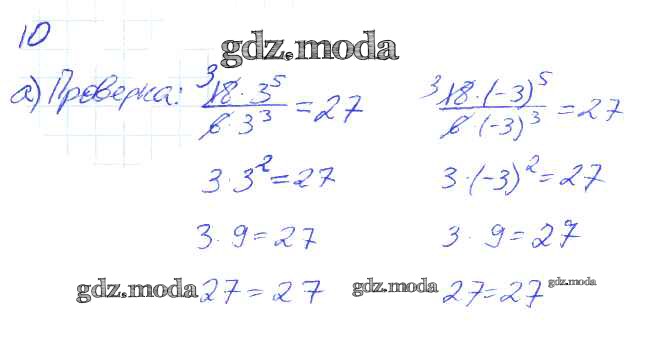 10
gdz.moda
а) Проверка: ³18·3⁵/6·3³ = 27 ³18·(-3)⁵/6(-3)³ = 27
3·3² = 27 3·(-3)² = 27
3·9 = 27 3·9 = 27
gdz.moda 27 = 27 gdz.moda 27 = 27 gdz.moda